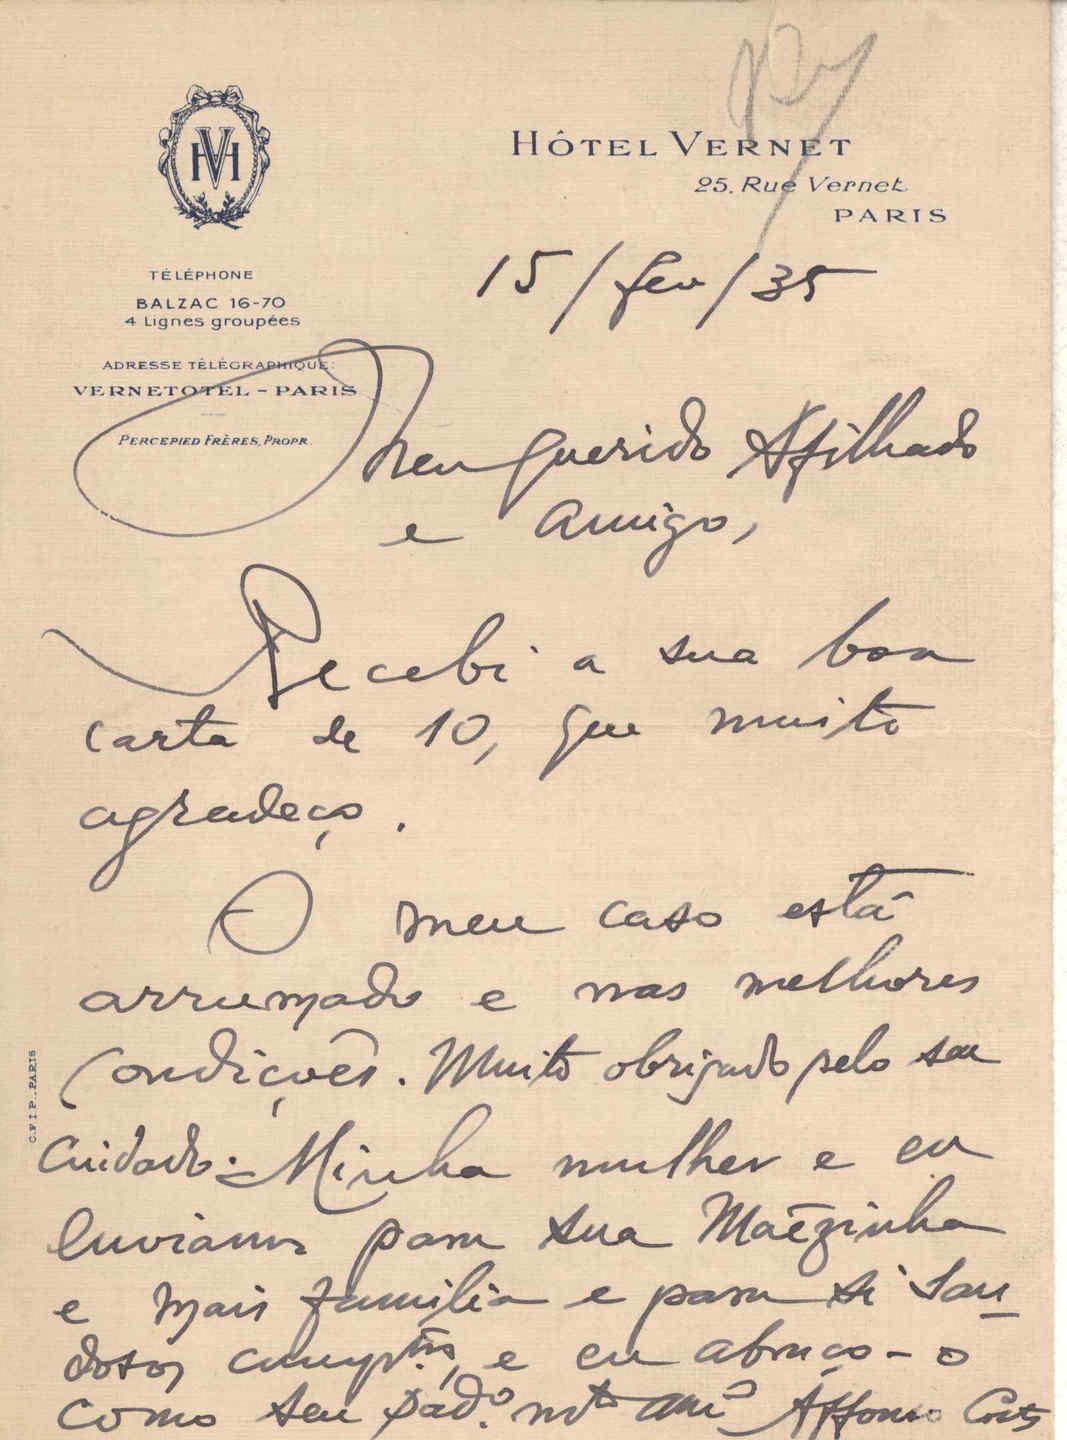 HÔTEL VERNET
25, Rue Vernet
PARIS
VH
TÉLÉPHONE
BALZAC 16-70
4 Lignes groupées
ADRESSE TÉLÉGRAPHIQUE:
VERNETOTEL - PARIS
PERCEPIED FRÈRES, PROPR.
15/fev/35
Meu querido Afilhado
e amigo,
Recebi a sua boa
carta de 10, que muito
agradeço.
O meu caso está
arrumado e nas melhores
condições. Muito obrigado pelo seu
cuidado. - Minha mulher e eu
enviamos para sua Mãezinha
e mais familia e para si sau-
dosos cumptos, e eu abraço-o
como seu padº. mto amº Affonso Costa
C.F.I.P. PARIS